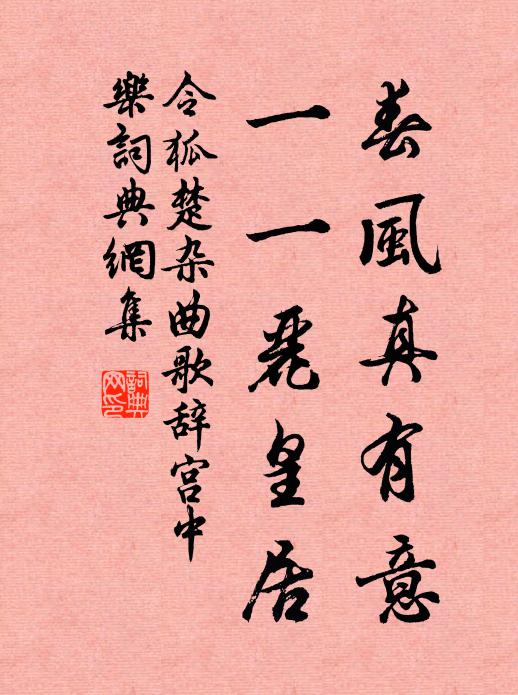 春風真有意
一一麗皇居
令狐楚杂曲歌辞宫中
樂詞典網集
詞典
网印